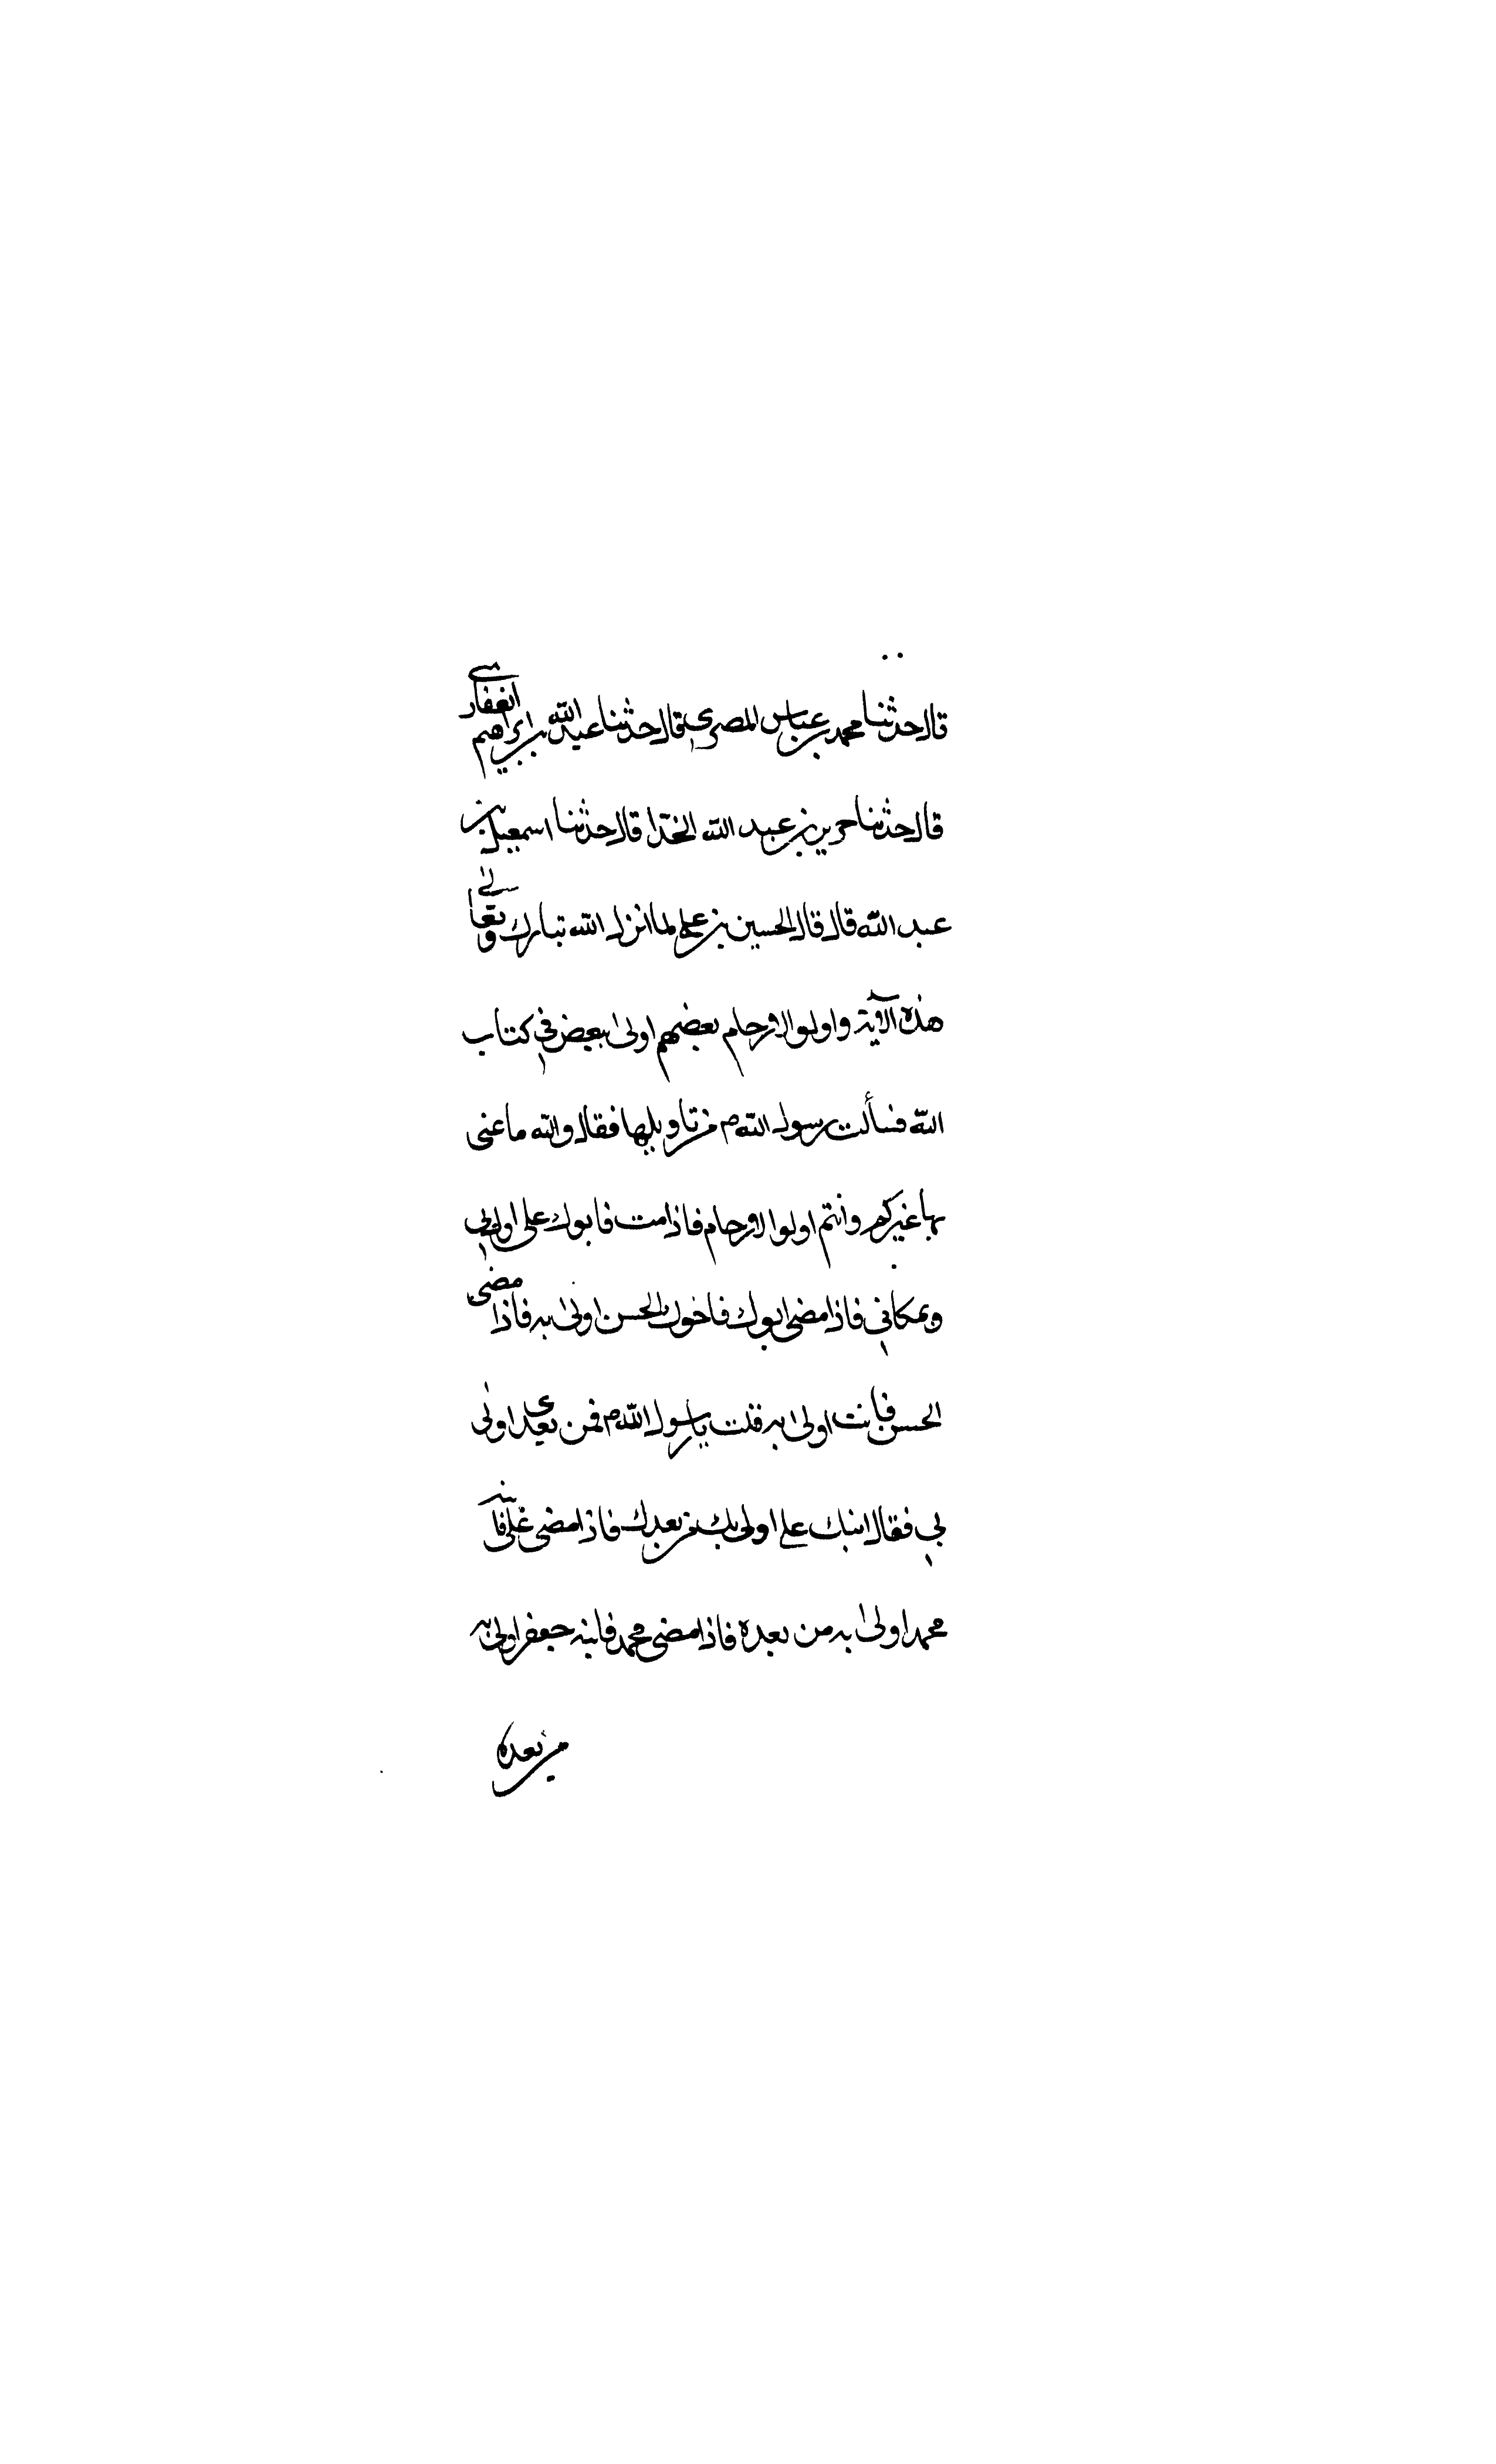 قال حدثنا محمد بن عباس المصري قال حدثنا عبد الله بن ابراهيم الغفاري
قال حدثنا حريز بن عبد الله الحذا قال حدثنا اسمعيل بن
عبد الله قال قال الحسين بن علي لما انزل الله تبارك وتعالى
هذه الآية واولوا الارحام بعضهم اولى ببعض في كتاب
الله فسألت رسول الله ص من تاويلها فقال والله ما عنى
بها غيركم وانتم اولوا الارحام فاذا مت فابوك علي اولى بي
وبمكاني فاذا مضى ابوك فاخوك الحسن اولى به فاذا مضى
الحسن فانت اولى به قلت يا رسول الله ص فمن بعدي اولى
بي فقال ابنك علي اولى بك من بعدك فاذا مضى علي فابنه
محمد اولى به من بعده فاذا مضى محمد فابنه جعفر اولى به
من بعده